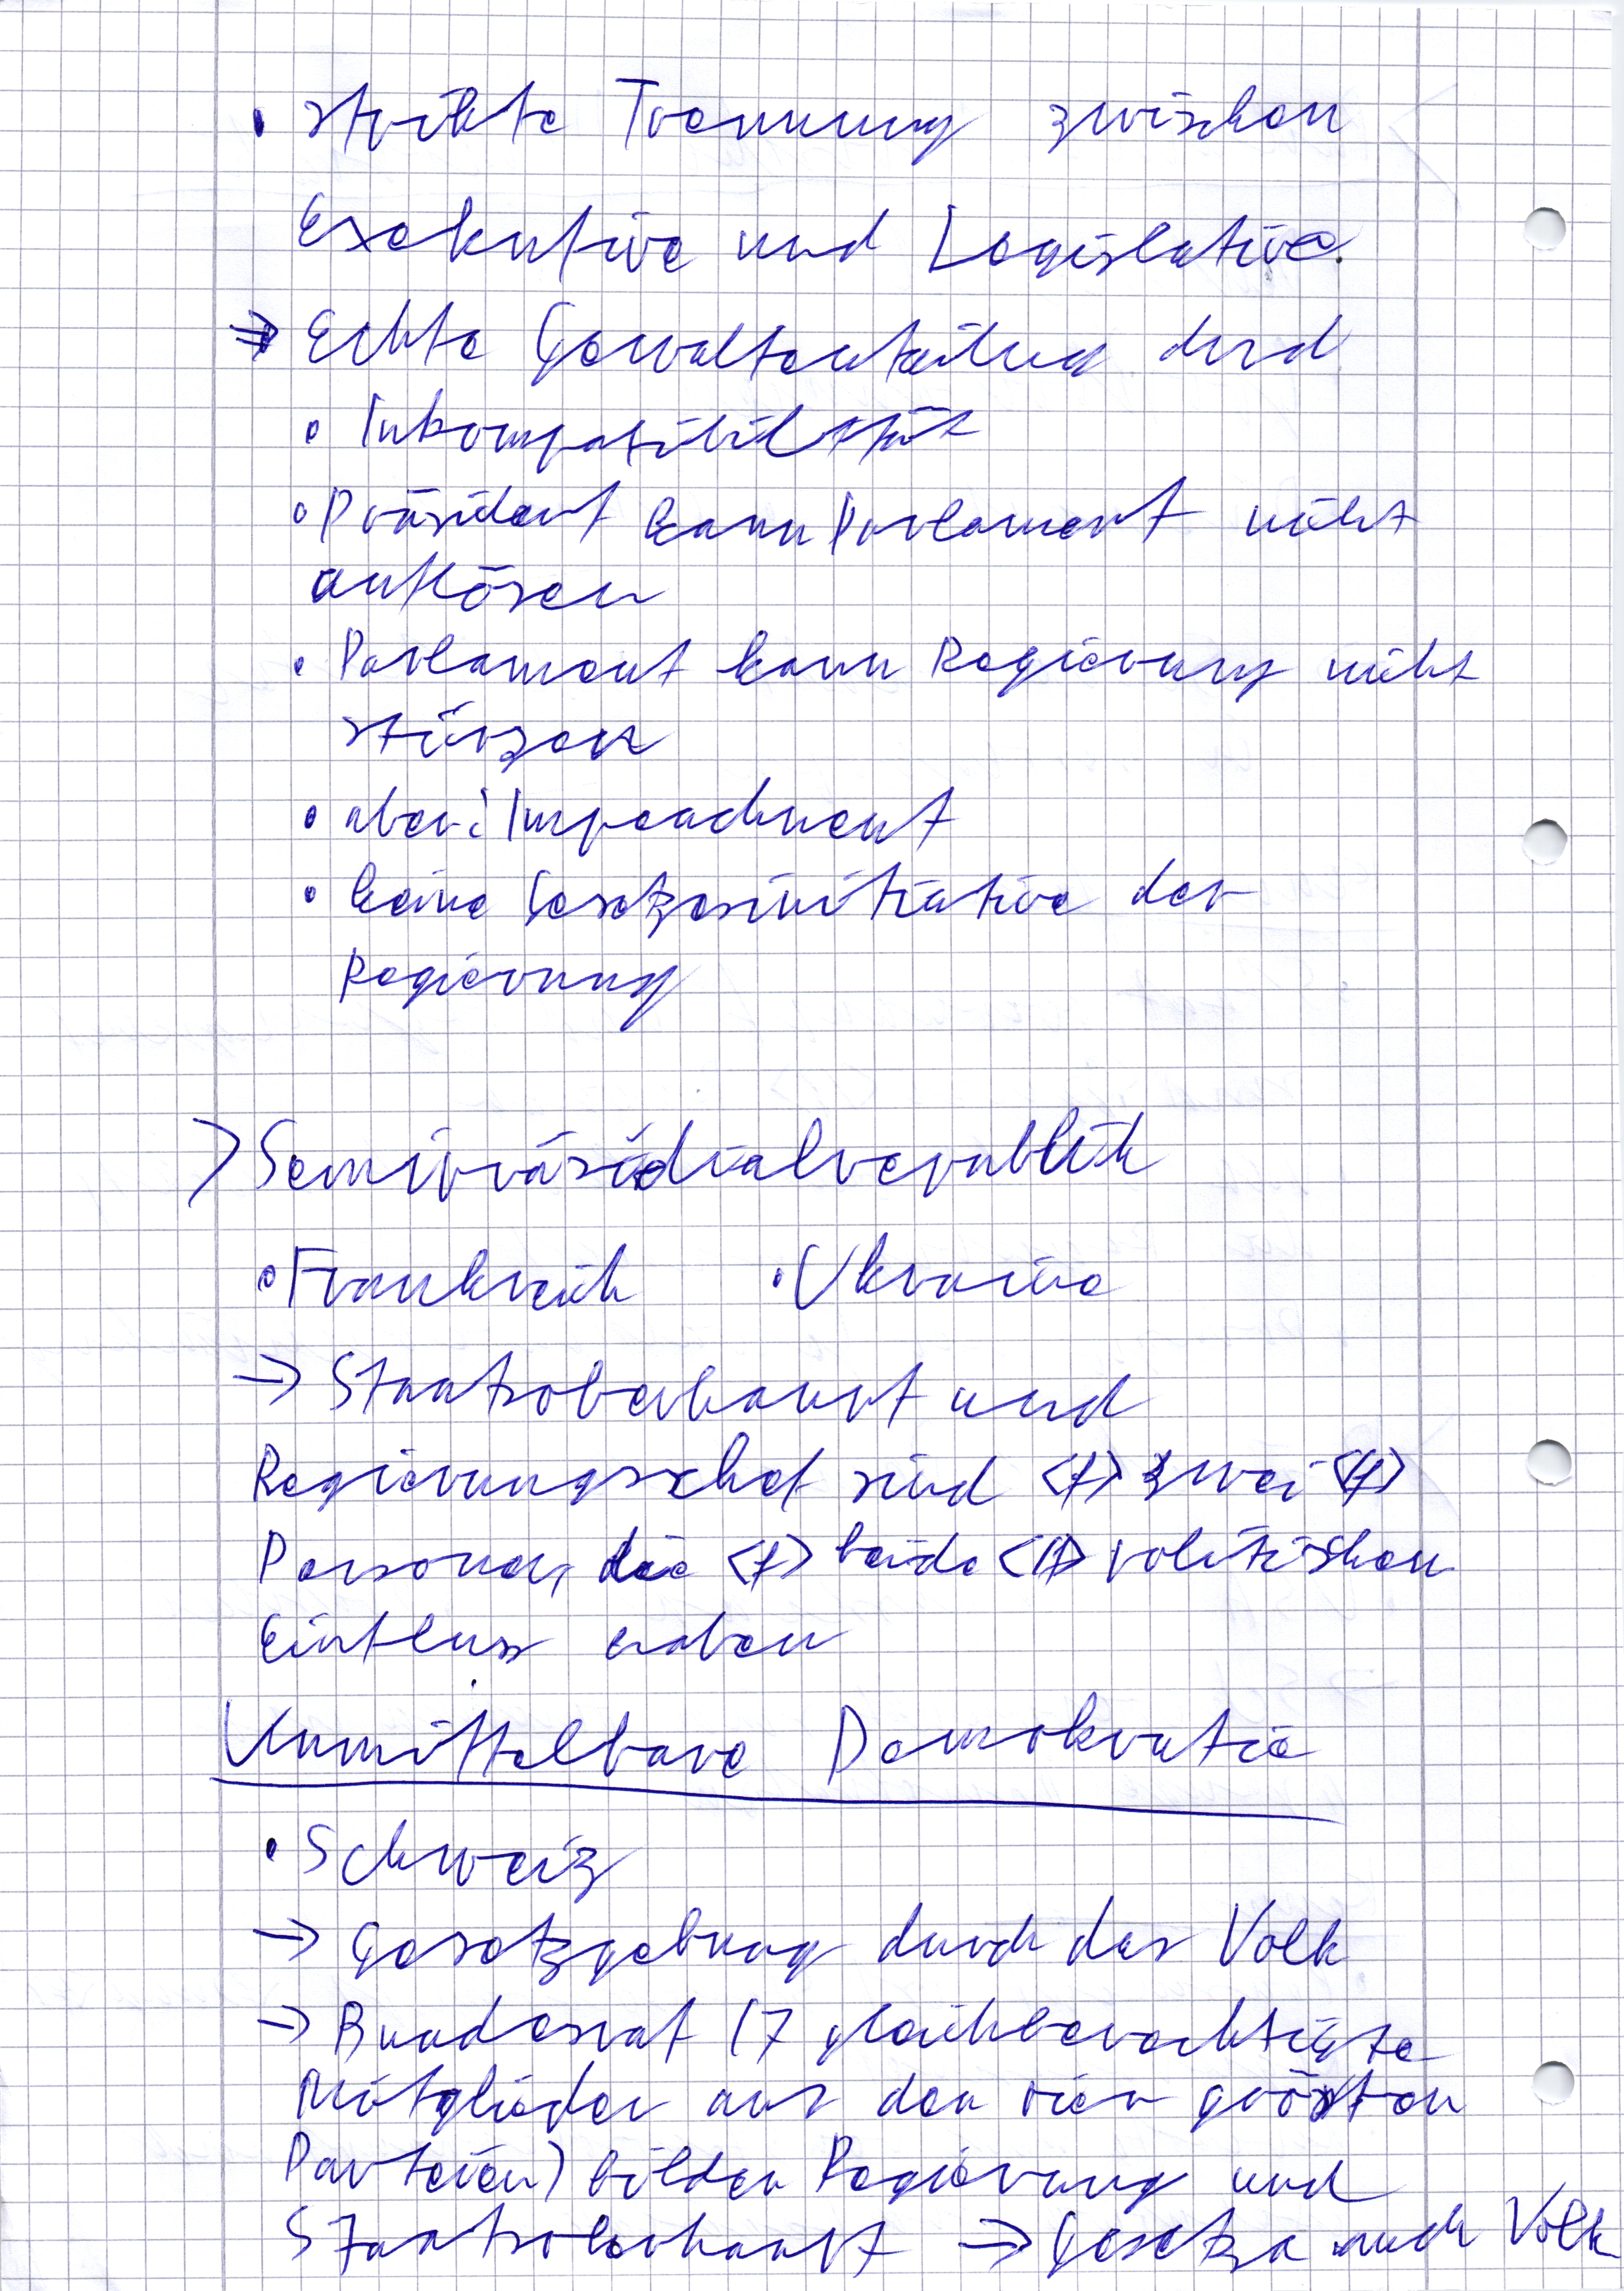 • strikte Trennung zwischen
Exekutive und Legislative.
⇒ Echte Gewaltenteilung durch
• Inkompatibilität
• Präsident kann Parlament nicht
auflösen
• Parlament kann Regierung nicht
stürzen
• aber: Impeachment
• keine Gesetzesinitiative der
Regierung
> Semipräsidialrepublik
• Frankreich • Ukraine
→ Staatsoberhaupt und
Regierungschef sind <f> zwei <f>
Personen, die <f> beide <f> politischen
Einfluss haben
Unmittelbare Demokratie
• Schweiz
→ Gesetzgebung durch das Volk
→ Bundesrat (7 gleichberechtigte
Mitglieder aus den vier größten
Parteien) bilden Regierung und
Staatsoberhaupt → Gesetze auch Volk